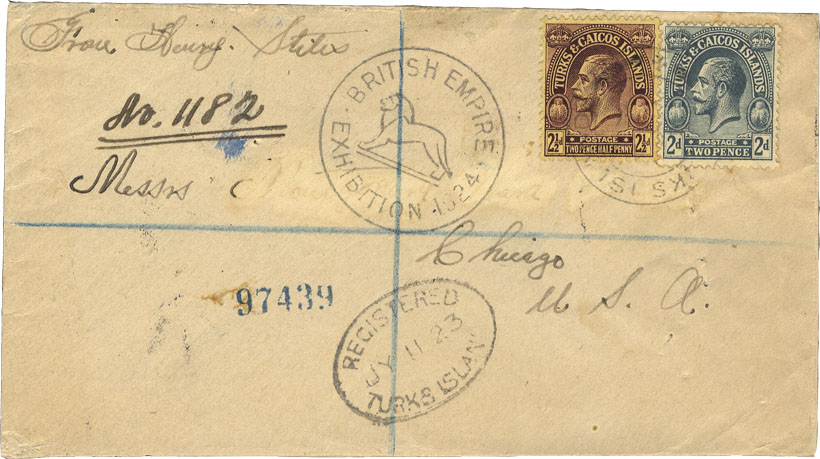 From Henry
No. 1182
Messrs
BRITISH EMPIRE
EXHIBITION 1924
TURKS & CAICOS ISLANDS
POSTAGE
2½ TWO PENCE HALF PENNY 2½
TURKS & CAICOS ISLANDS
POSTAGE
2d TWO PENCE 2d
KS ISL
Chicago
U S A.
97439
REGISTERED
JY 11 23
TURKS ISLAN